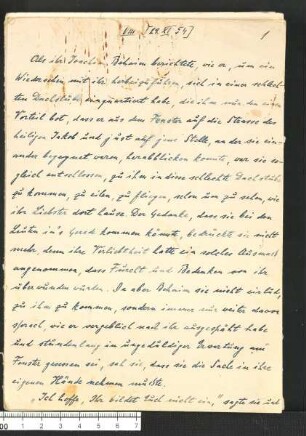 VIII [22 XI 54] 1
Als ihr Joachim Behaim berichtete, wie er, um ein
Wiedersehen mit ihr herbeizuführen, sich in einer schlech-
ten Dachstube einquartiert habe, die ihm nur den einen
Vorteil bot, dass er aus dem Fenster auf die Strasse des
heiligen Jakob und just auf jene Stelle, an der sie ein-
ander begegnet waren, herabblicken konnte, war sie so-
gleich entschlossen, zu ihm in diese schlechte Dachstube
zu kommen, zu eilen, zu fliegen, schon um zu sehen, wie
ihr Liebster dort hause. Der Gedanke, dass sie bei den
Leuten in's Gerede kommen könnte, bedrückte sie nicht
mehr, denn ihre Verliebtheit hatte ein solches Ausmass
angenommen, dass Furcht und Bedenken von ihr
überwunden wurden. Da aber Behaim sie nicht einlud,
zu ihm zu kommen, sondern immer nur weiter davon
sprach, wie er vergeblich nach ihr ausgespäht habe
und stundenlang in ungeduldiger Erwartung am
Fenster gesessen sei, sah sie, dass sie die Sache in ihre
eigenen Hände nehmen müßte.
"Ich hoffe, Ihr bildet Euch nicht ein," sagte sie und